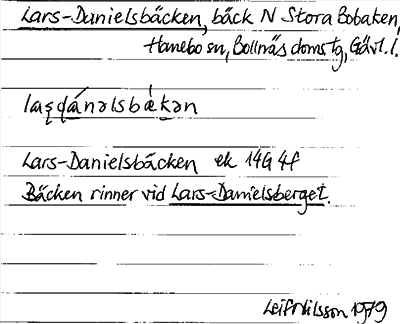 Lars-Danielsbäcken, bäck N Stora Bobaken,
Hanebo sn, Bollnäs doms tg, Gävl. l.
laʂɖánəlsbǽkən
Lars-Danielsbäcken ek 14G 4f
Bäcken rinner vid Lars-Danielsberget.
Leif Nilsson 1979